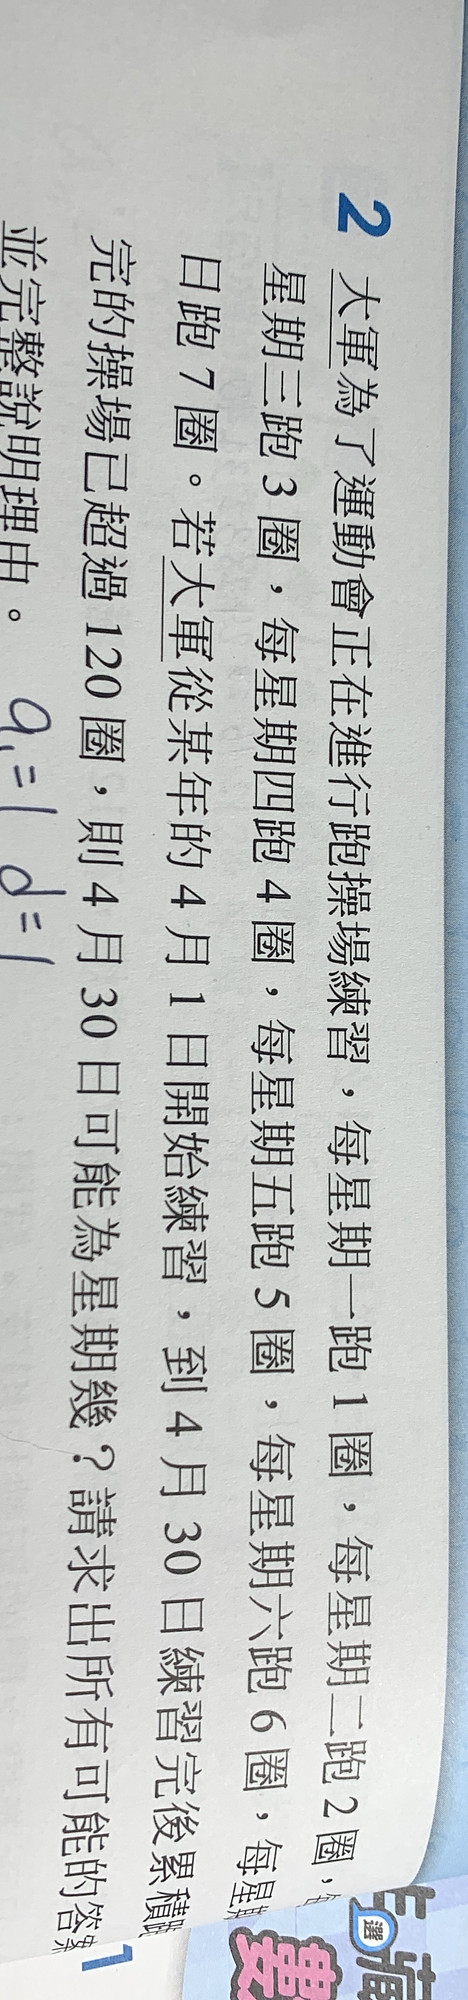 2 大軍為了運動會正在進行跑操場練習，每星期一跑 1 圈，每星期二跑 2 圈，
星期三跑 3 圈，每星期四跑 4 圈，每星期五跑 5 圈，每星期六跑 6 圈，每星期
日跑 7 圈。若大軍從某年的 4 月 1 日開始練習，到 4 月 30 日練習完後累積跑
完的操場已超過 120 圈，則 4 月 30 日可能為星期幾？請求出所有可能的答案
並完整說明理由。
a₁=1 d=1
選
1